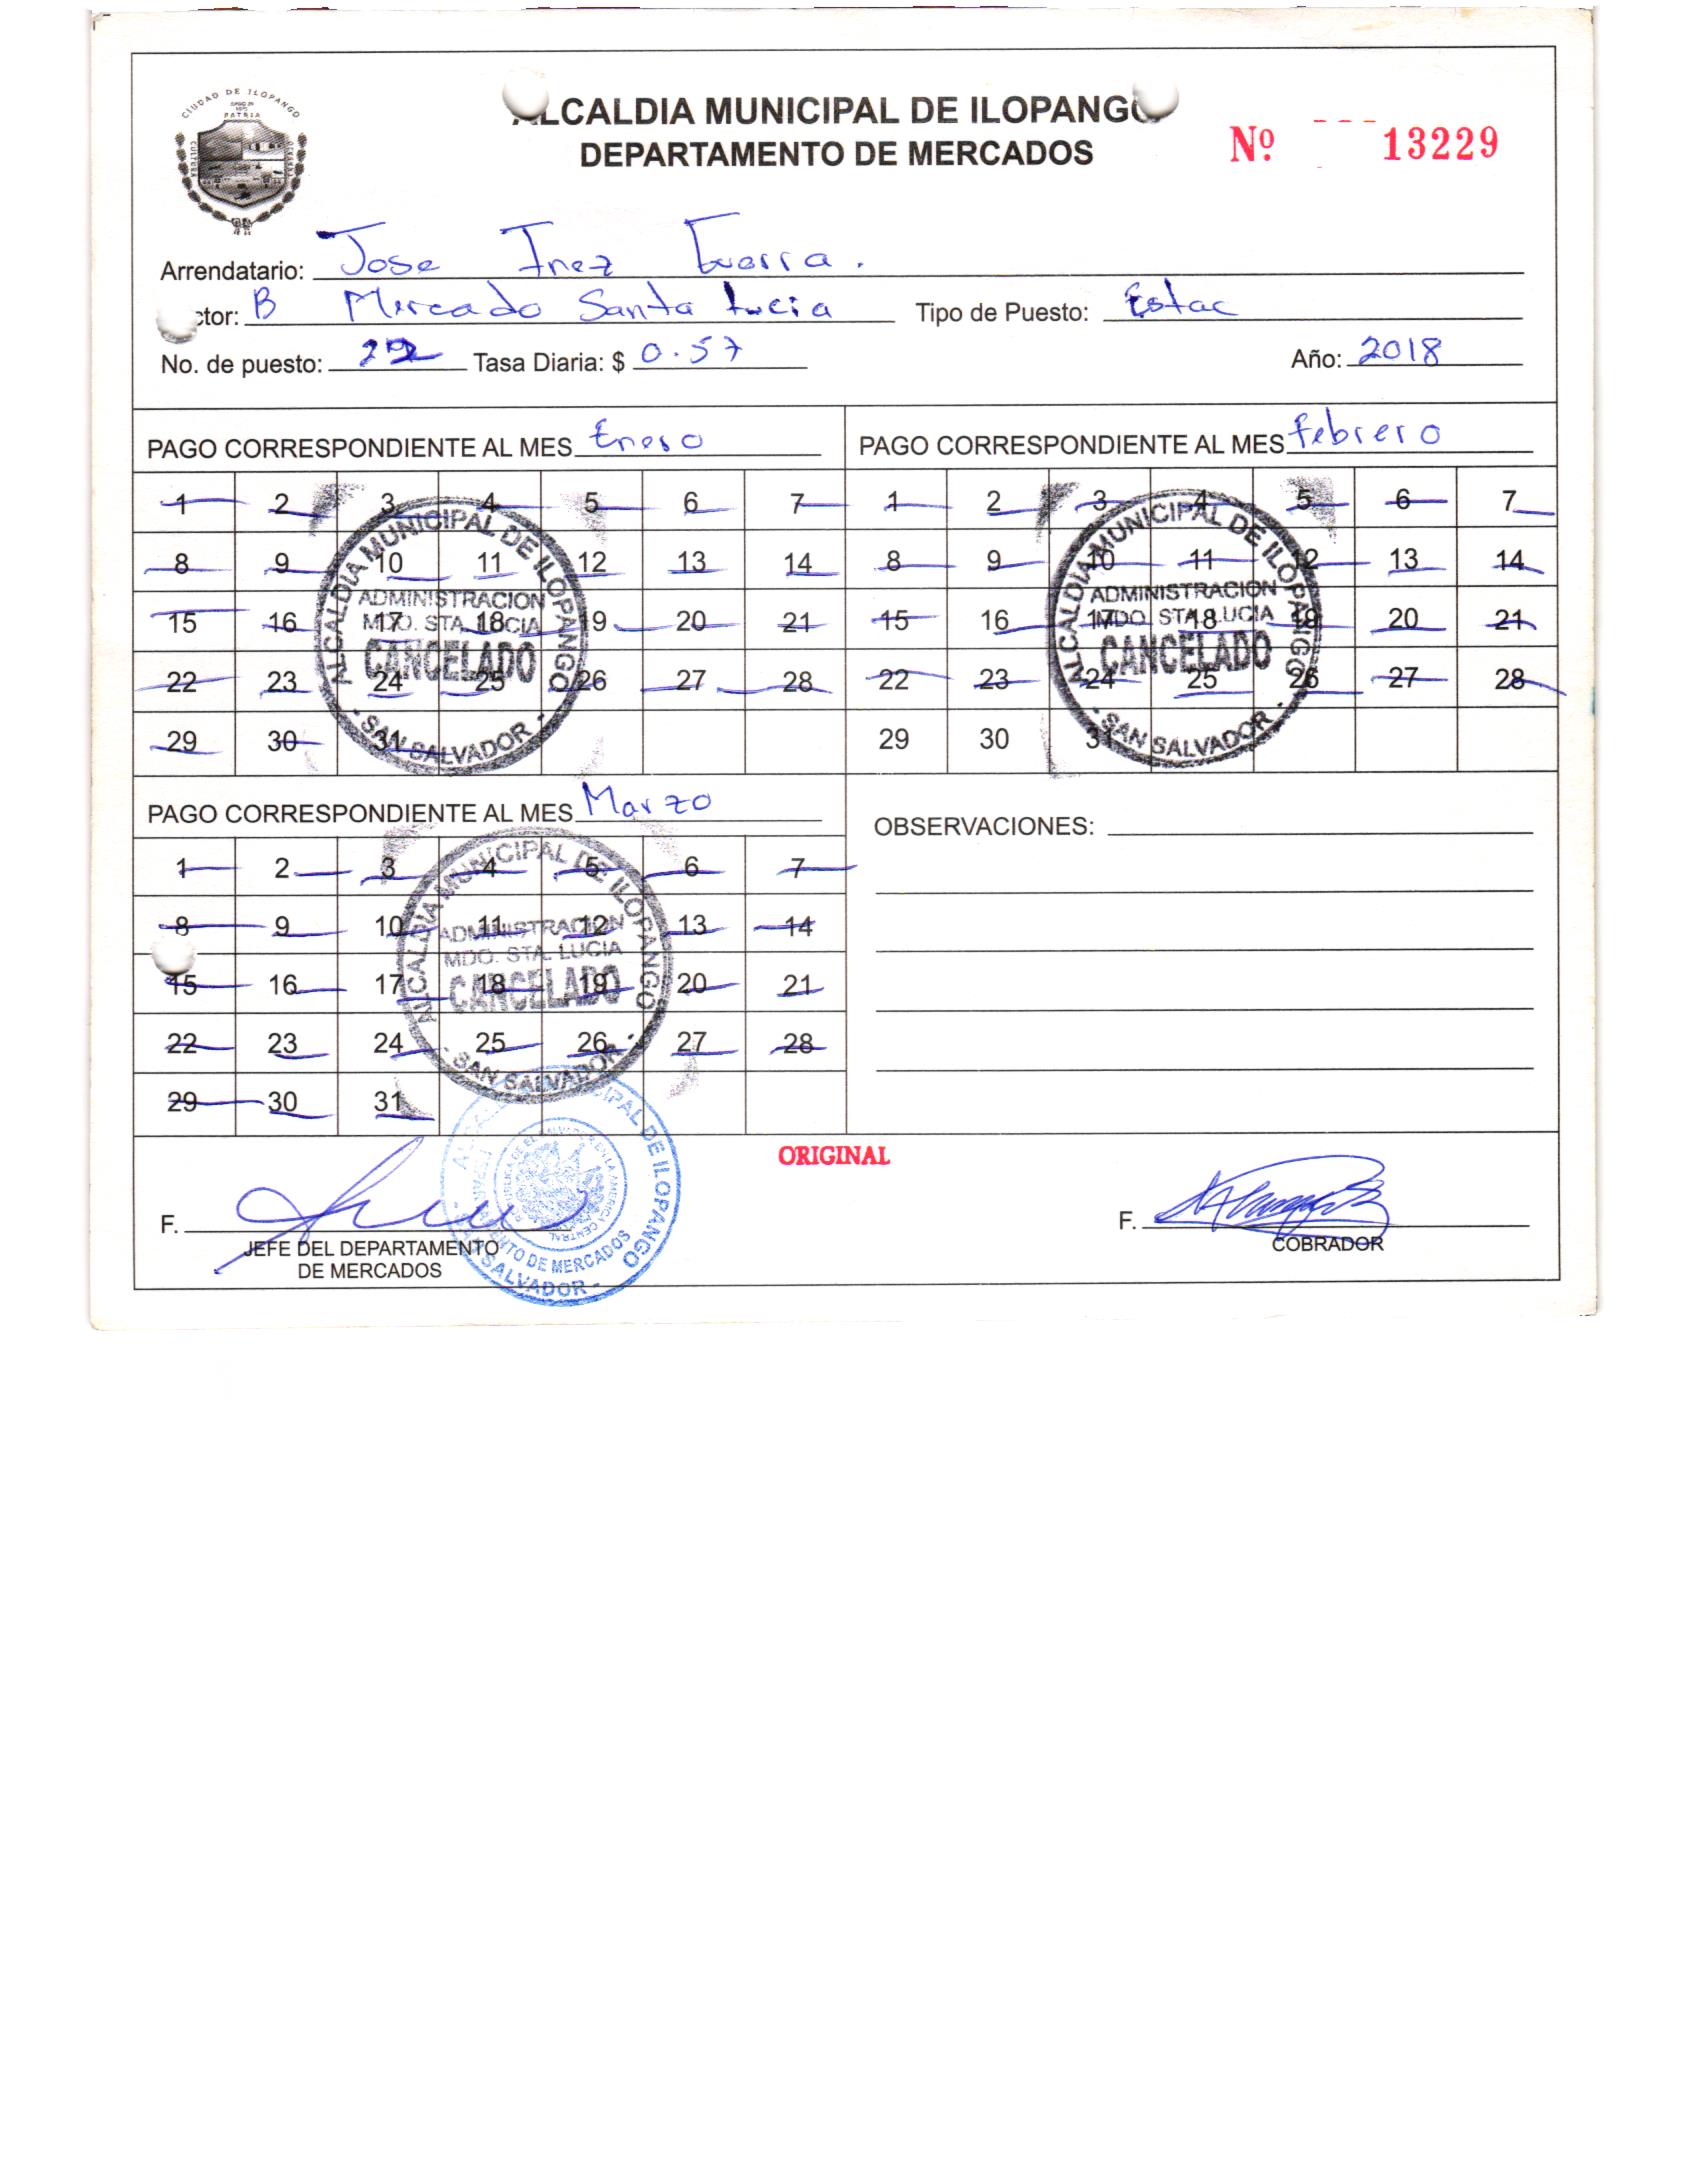 CIUDAD DE ILOPANGO
PATRIA
ALCALDIA MUNICIPAL DE ILOPANGO
DEPARTAMENTO DE MERCADOS
Nº 13229
Arrendatario: Jose Inez Guerra.
ctor: B Mercado Santa Lucia Tipo de Puesto: Estac
No. de puesto: 22 Tasa Diaria: $ 0.57 Año: 2018
PAGO CORRESPONDIENTE AL MES Enero
1 2 3 4 5 6 7
8 9 10 11 12 13 14
15 16 17 18 19 20 21
22 23 24 25 26 27 28
29 30 31
ALCALDIA MUNICIPAL DE ILOPANGO
ADMINISTRACION
MDO. STA. LUCIA
CANCELADO
- SAN SALVADOR -
PAGO CORRESPONDIENTE AL MES febrero
1 2 3 4 5 6 7
8 9 10 11 12 13 14
15 16 17 18 19 20 21
22 23 24 25 26 27 28
29 30 31
ALCALDIA MUNICIPAL DE ILOPANGO
ADMINISTRACION
MDO. STA. LUCIA
CANCELADO
- SAN SALVADOR -
PAGO CORRESPONDIENTE AL MES Marzo
1 2 3 4 5 6 7
8 9 10 11 12 13 14
15 16 17 18 19 20 21
22 23 24 25 26 27 28
29 30 31
ALCALDIA MUNICIPAL DE ILOPANGO
ADMINISTRACION
MDO. STA. LUCIA
CANCELADO
- SAN SALVADOR -
OBSERVACIONES:
ORIGINAL
F.
JEFE DEL DEPARTAMENTO
DE MERCADOS
F.
COBRADOR